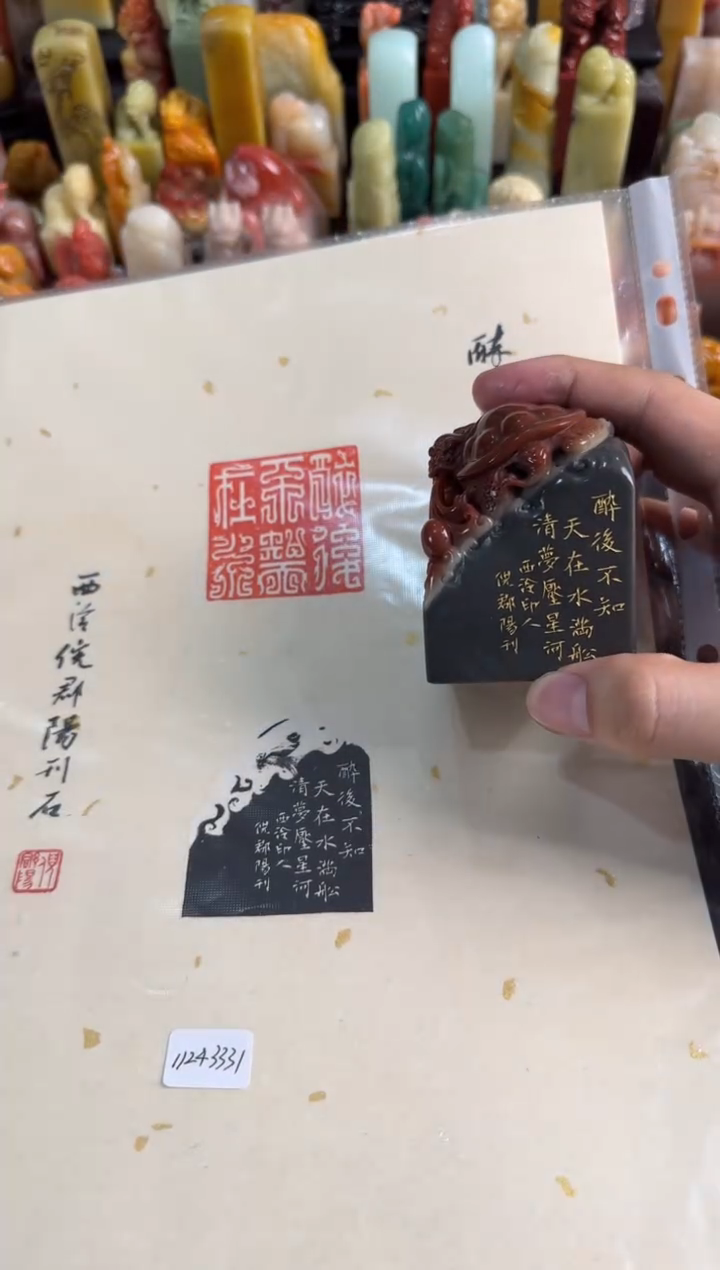 醉
醉後不知
天在水滿舩
清夢壓星河
西泠印人
倪郡陽刊
西泠倪郡陽刊石
醉後不知
天在水滿舩
清夢壓星河
西泠印人
倪郡陽刊
11243331